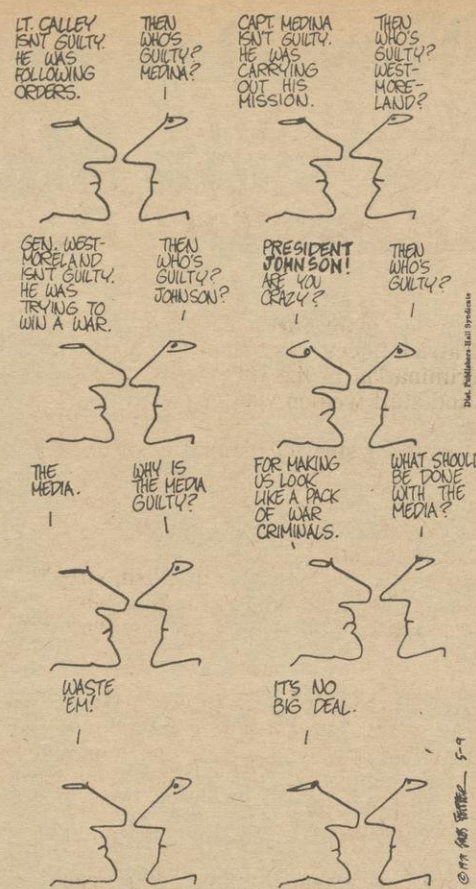 LT. CALLEY
ISNT GUILTY.
HE WAS
FOLLOWING
ORDERS.
THEN
WHO'S
GUILTY?
MEDINA?
CAPT. MEDINA
ISN'T GUILTY.
HE WAS
CARRYING
OUT HIS
MISSION.
THEN
WHO'S
GUILTY?
WEST-
MORE-
LAND?
GEN. WEST-
MORELAND
ISNT GUILTY.
HE WAS
TRYING TO
WIN A WAR.
THEN
WHO'S
GUILTY?
JOHNSON?
PRESIDENT
JOHNSON!
ARE YOU
CRAZY?
THEN
WHO'S
GUILTY?
Dist. Publishers-Hall Syndicate
THE
MEDIA.
WHY IS
THE MEDIA
GUILTY?
FOR MAKING
US LOOK
LIKE A PACK
OF WAR
CRIMINALS.
WHAT SHOULD
BE DONE
WITH THE
MEDIA?
WASTE
'EM!
IT'S NO
BIG DEAL.
5-9